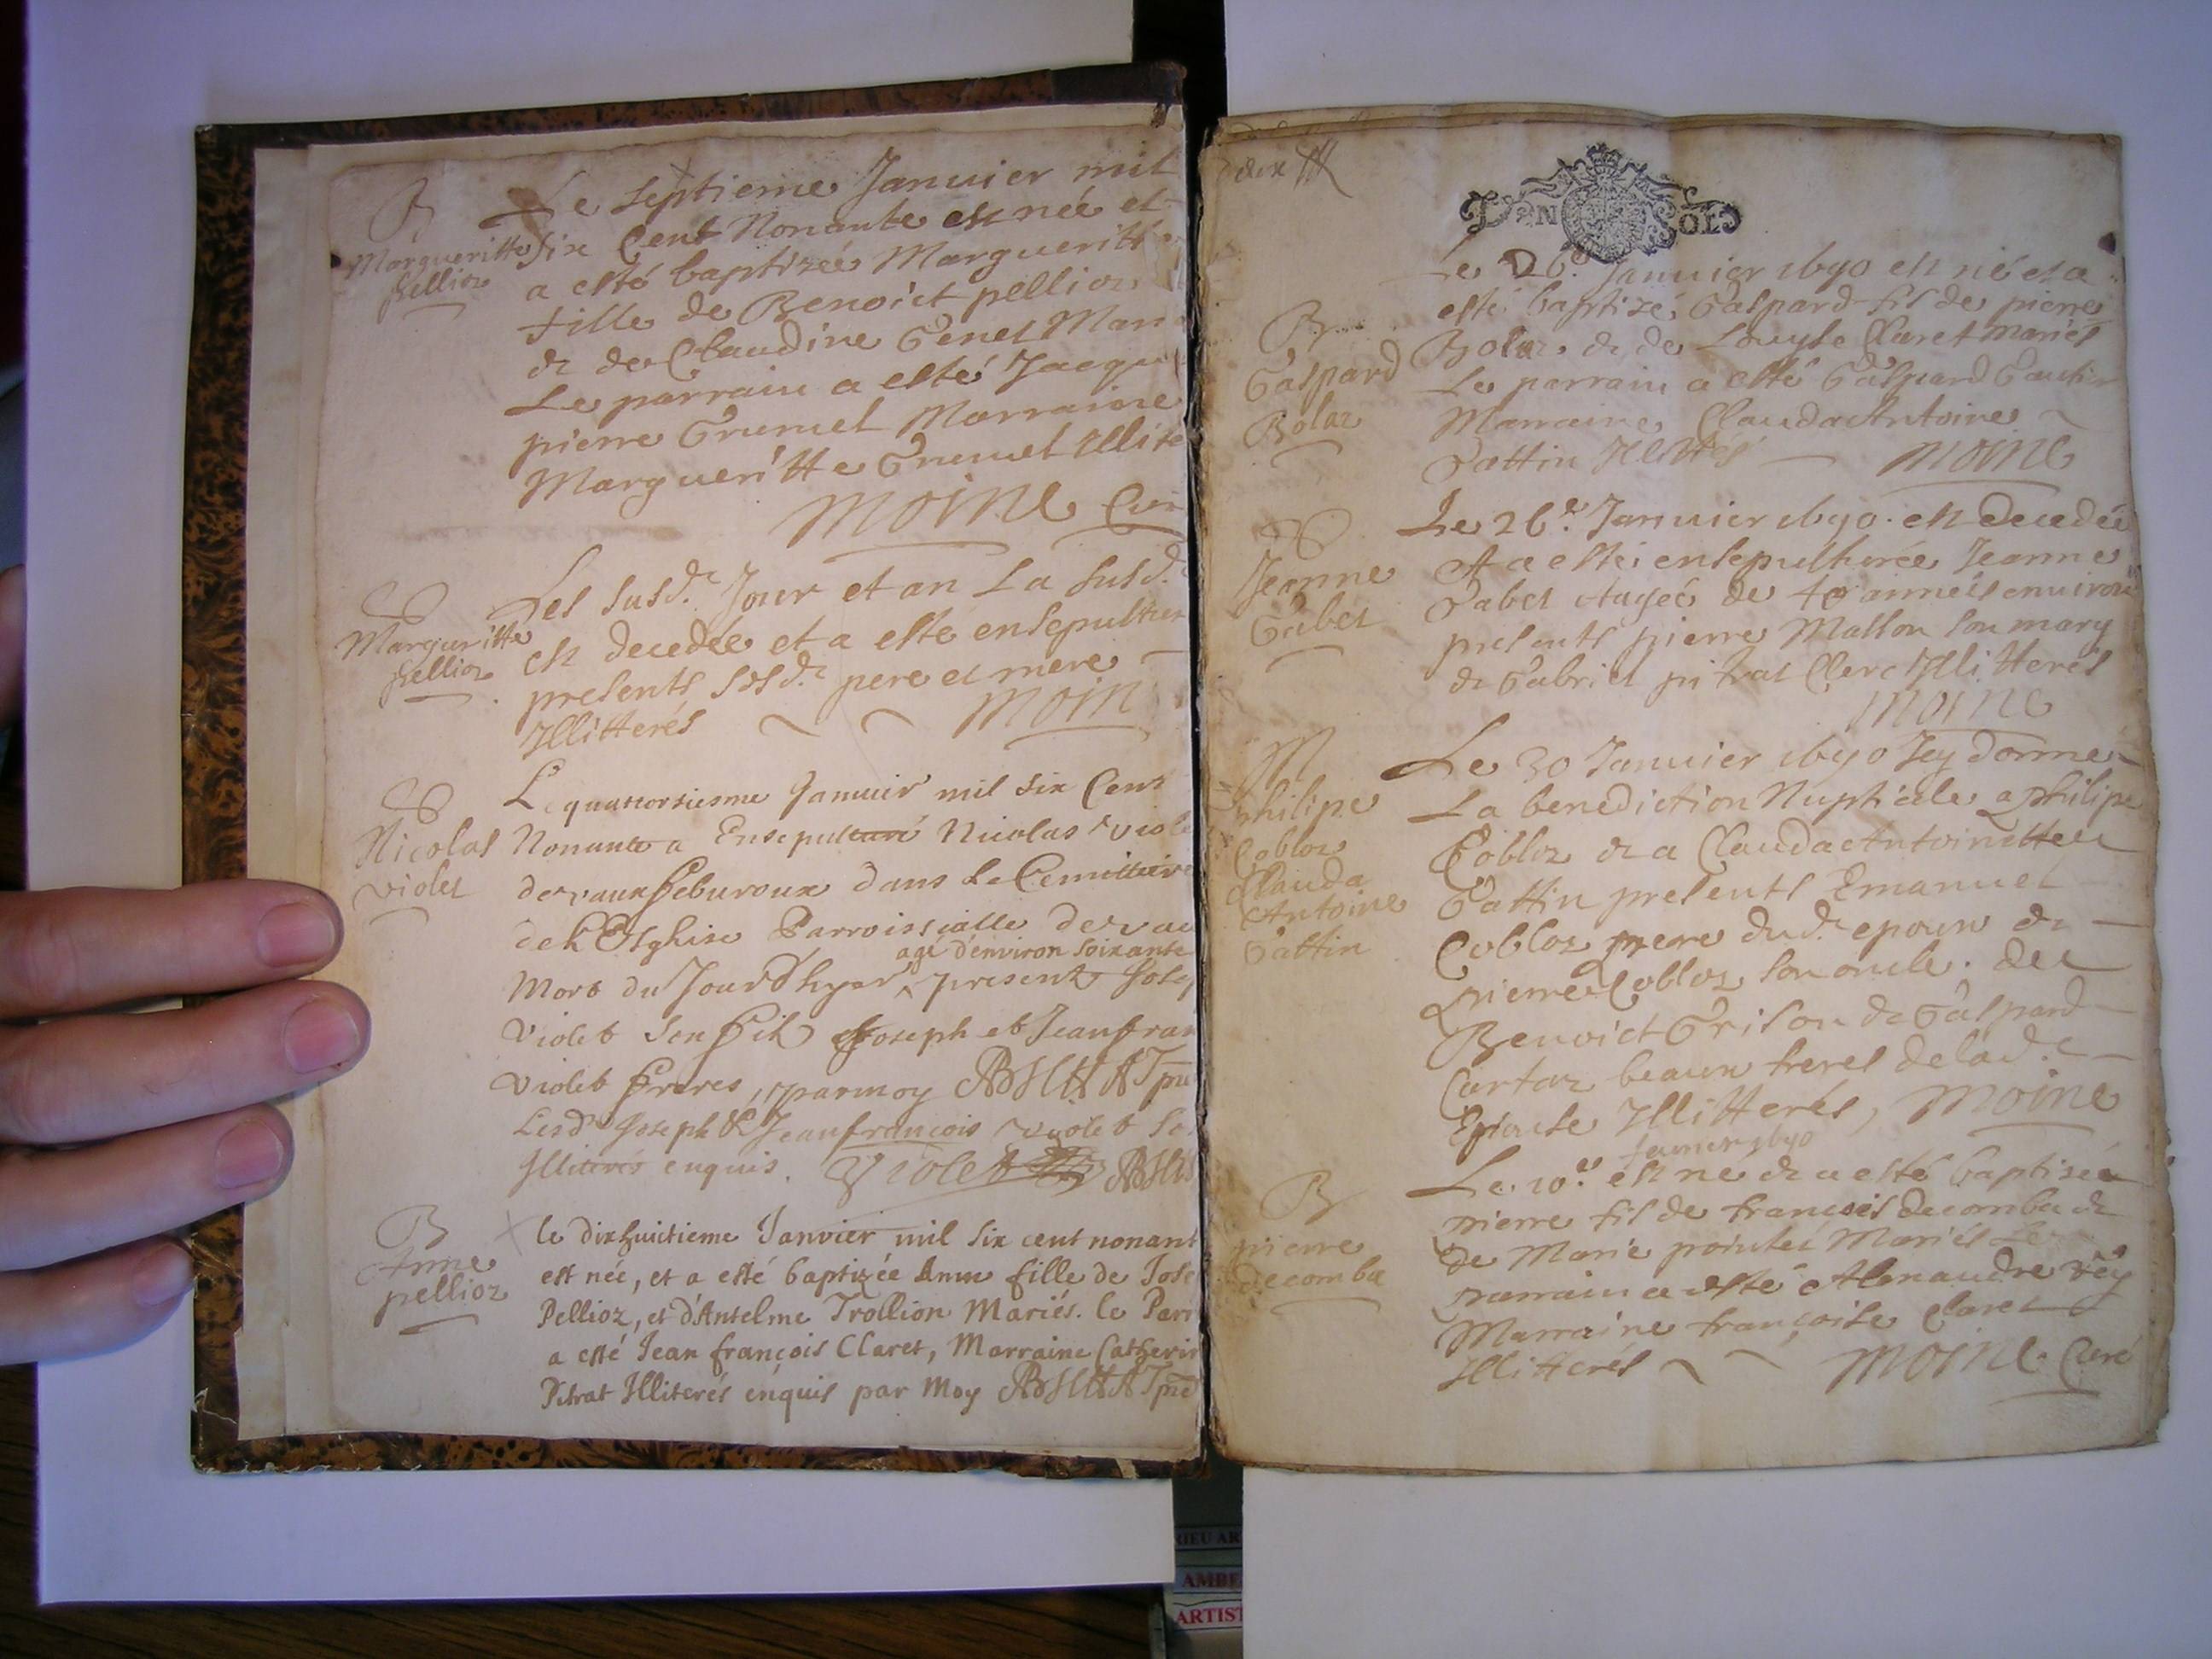 B
Margueritte
pellioz
Le septieme Januier mil
six Cent Nonante est née et
a esté baptizée Margueritte
fille de Benoict pellioz
& de Claudine Genet Mari
Le parrain a esté Jacque
pierre Grumel Marraine
Margueritte Grumel Illite
Moine Cur
S
Margueritte
pellioz
Les susd. Jour et an La susd.
est decedée et a esté ensepultur
presents sesd. pere et mere
Illitterés Moin
S
Nicolas
violet
Le quattorsiesme Januier mil six Cent
Nonante a Ensepulturé Nicolas viole
de vaux feburoux dans Le Cemittiere
de L'Esglise Parroissialle de vau
age d'environ soixante
Mort du Jour d'hyer, present Josep
Violet son fils Joseph et Jean fran
Violet freres, par moy
Lesd. Joseph & Jean francois violet
Illiterés enquis. Violet
B
Anne
pellioz
le dixhuictieme Janvier mil six cent nonant
est née, et a esté baptizée Anne fille de Jose
Pellioz, et d'Antelme Trollion Mariés. le Parr
a esté Jean françois Claret, Marraine Catherin
Pitrat Illiterés enquis par Moy
deux
GEN OL
B
Gaspard
Bolaz
Le 26e Januier 1690 est né et a
esté baptizé Gaspard fils de pierre
Bolaz & de Louyse Claret mariés
Le parrain a esté Gaspard Gautier
Marraine Clauda Antoine
Gattin Illittés Moine
S
Jeanne
Gabet
Le 26.e Januier 1690. est decedée
et a esté ensepulturée Jeanne
Gabet Aagée de 40 années enuiron
presents pierre Mallon son mary
& Gabriel pitrat Clerc Illitterés
Moine
M
philipe
Cobloz
Clauda
Antoine
Gattin
Le 30 Januier 1690 Jey donné
La benediction Nuptiale a philipe
Cobloz & a Clauda Antoinette
Gattin presents Emanuel
Cobloz frere dud. epoux &
pierre Cobloz son oncle. de
Benoict Grison & Gaspard
Cartaz beaux freres de lad.e
Epouse Illitterés, Moine
B
pierre
decomba
Januier 1690
Le 10.e est ne & a esté baptisée
pierre fils de francois decomba &
de Marie pointet Mariés Le
parrain a esté Alexandre vey
Marraine françoise Claret
Illitterés Moine Curé
RIEU AR
AMBE
ARTIST